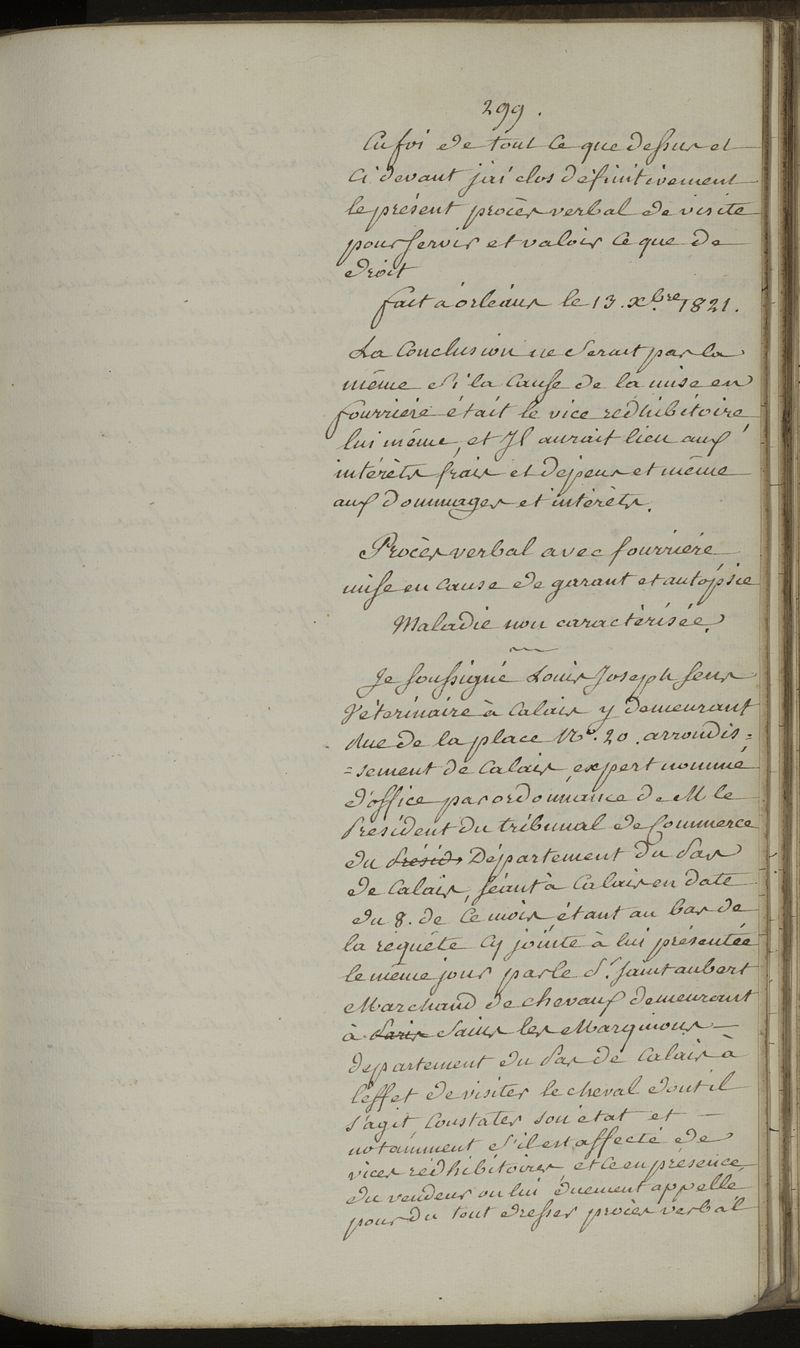 299.
En foi de tout ce que dessus et
ci devant j'ai clos définitivement
le présent procès verbal de visite
pour servir et valoir ce que de
droit
fait à orléans le 13. xbre. 1821.
La Conclusion ne serait pas la
même si la cause de la mise en
fourrière était le vice redhibitoire
lui même, et Il aurait lieu aux
intérèts frais et depens et même
aux dommages et intérèts.
Procès verbal avec fourrière
mise en cause de garant et autópsie
Maladie non caractèrisée.
Je soussigné Louis Joseph sens
Véterinaire à Calais y demeurant
Rue de la place No. 20. arrondis=
=sement de Calais, expert nommé
d'office par ordonnance de M le
Président du tribunal de Commerce
du Présid Département du Pas
de Calais, séant à Calais en date
du 8. de Ce mois, étant au bas de
la requête Cy jointe à lui présentée
le même jour par le Sr. saintaubert
Marchand de chevaux demeurant
à Paris Sains les Marquions
departement du Pas de Calais à
l'effet de visiter le cheval dont il
s'agit Constater son état et
notamment s'il est affecté de
vices rédhibitoires et ce en présence
du vendeur ou lui duement appellé
pour du tout dresser procès verbal